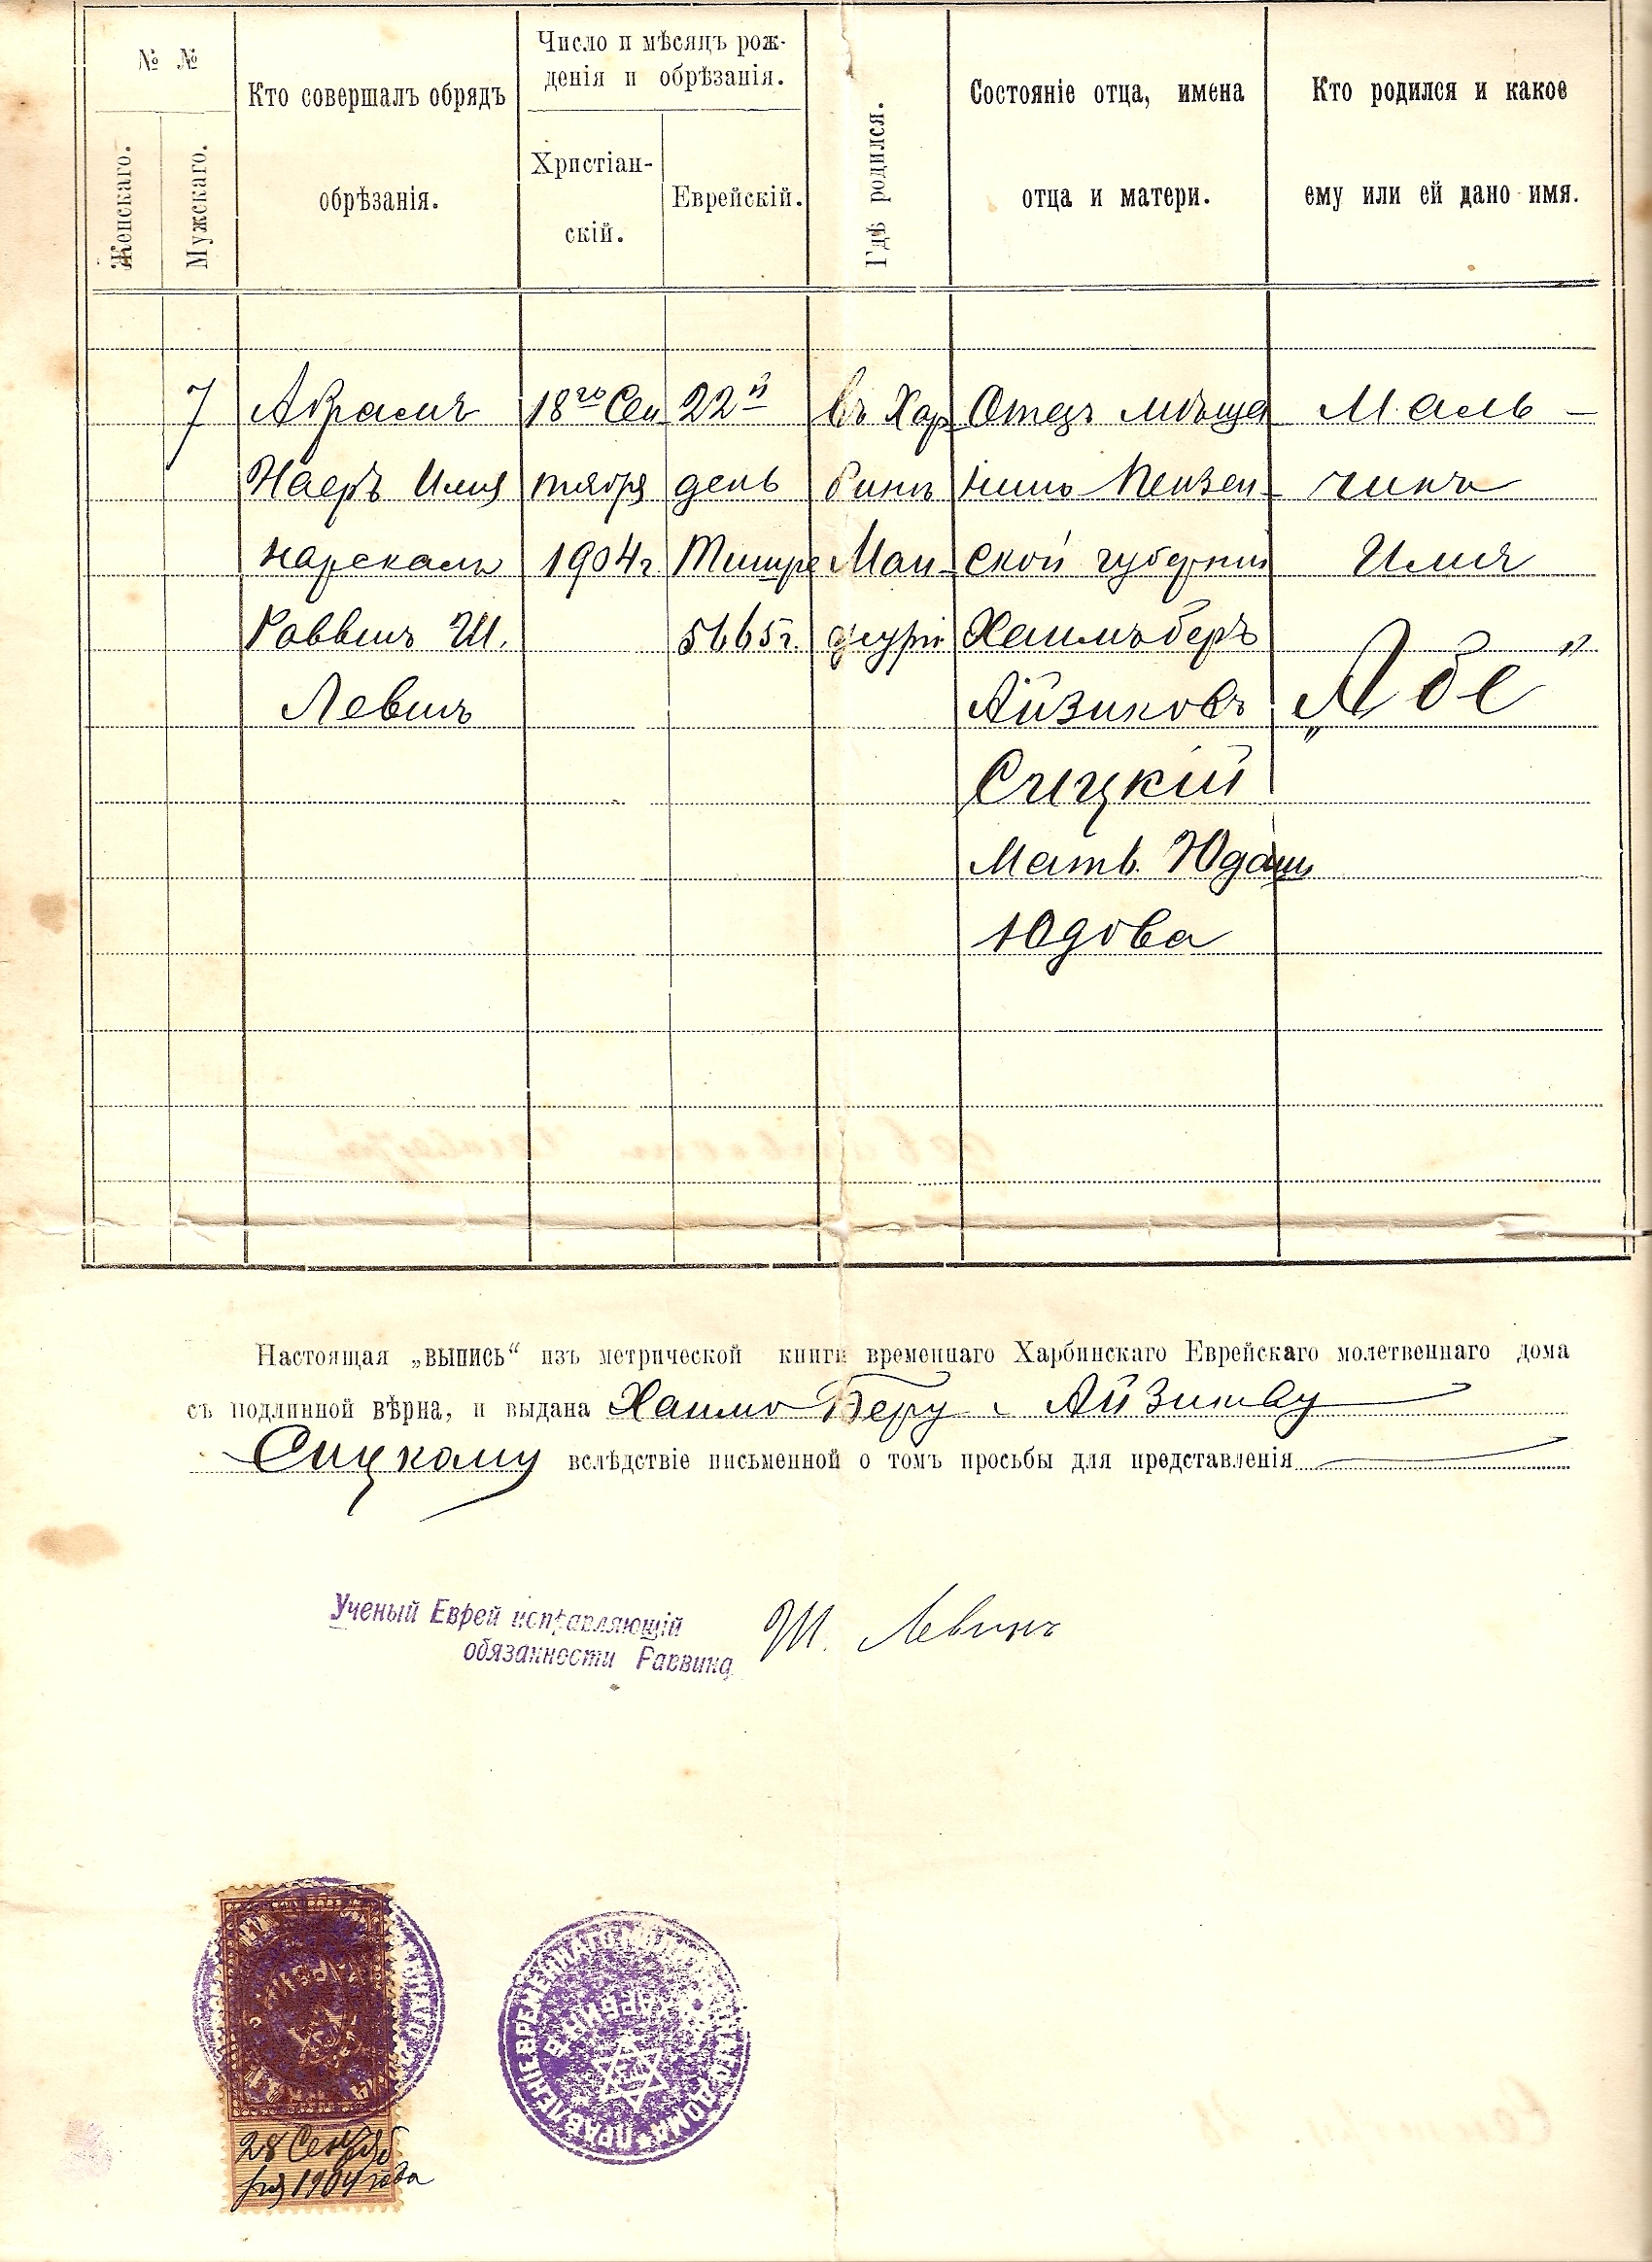 № №
Женскаго.
Мужскаго.
Кто совершалъ обрядъ
обрѣзанія.
Число и мѣсяцъ рож-
денія и обрѣзанія.
Христіан-
скій.
Еврейскій.
Гдѣ родился.
Состояніе отца, имена
отца и матери.
Кто родился и какое
ему или ей дано имя.
7
Абрамъ
Наеръ Имя
нарекалъ
Раввинъ Ш.
Левинъ
18го Сен
тября
1904г.
22й
день
Тишре
5665г.
въ Хар
бинѣ
Ман-
джурiи
Отецъ мѣща
нинъ Пензен-
ской губерніи
Хаимъ Беръ
Айзиковъ
Сицкій
Мать Юдашь
Юдова
Маль-
чикъ
Имя
„Абе"
Настоящая „выпись“ изъ метрической книги временнаго Харбинскаго Еврейскаго молетвеннаго дома
съ подлинной вѣрна, и выдана Хаимо Беру Айзикову
Сицкому вслѣдствіе письменной о томъ просьбы для представленія
Ученый Еврей исправляющій
обязанности Раввина
Ш. Левинъ
28 Сентяб
ря 1904 года
ПРАВЛЕНІЕ ВРЕМЕННАГО МОЛИТВЕННАГО ДОМА
ХАРБИНѢ